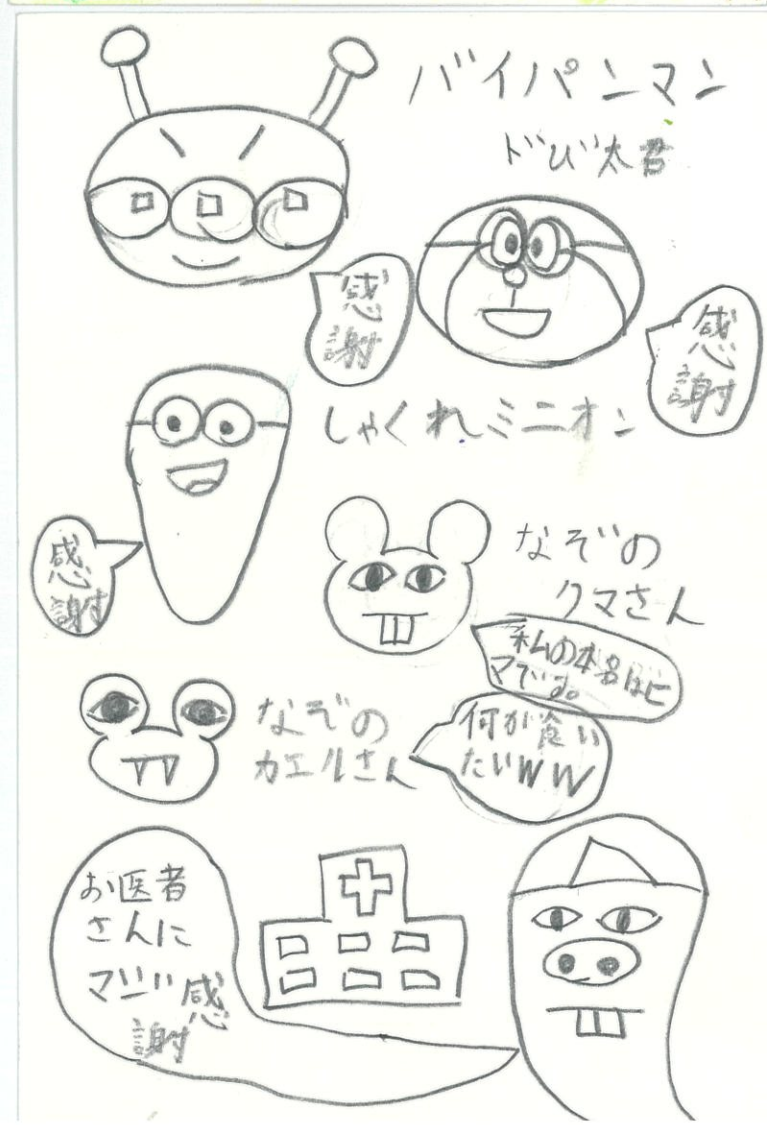 バイパンマン
ドび太君
感
謝
感
謝
しゃくれミニオン
感
謝
なぞの
クマさん
私の本名はヒ
マです。
なぞの
カエルさん
何が食い
たいWW
お医者
さんに
マジ感
謝